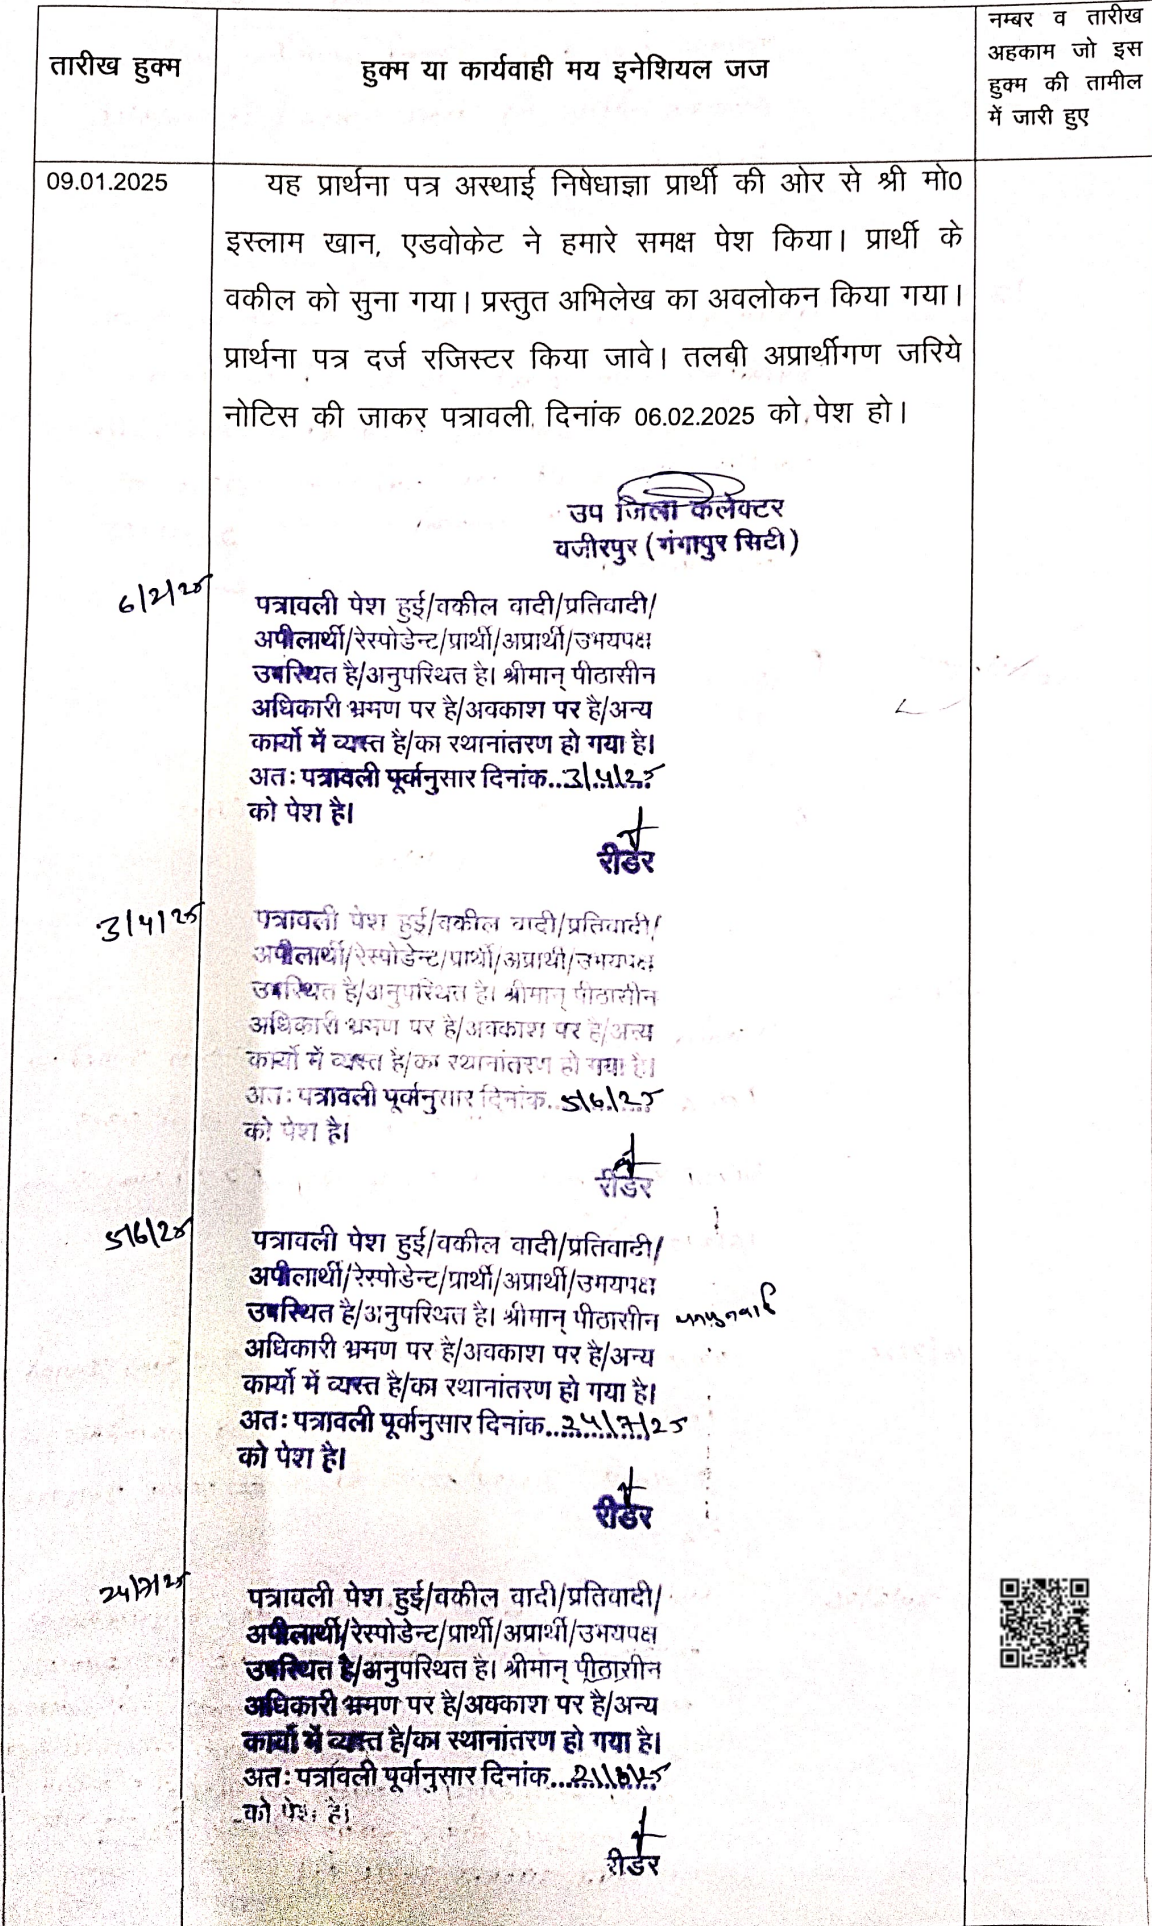 तारीख हुक्म
हुक्म या कार्यवाही मय इनेशियल जज
नम्बर व तारीख
अहकाम जो इस
हुक्म की तामील
में जारी हुए
09.01.2025
यह प्रार्थना पत्र अस्थाई निषेधाज्ञा प्रार्थी की ओर से श्री मो0
इस्लाम खान, एडवोकेट ने हमारे समक्ष पेश किया। प्रार्थी के
वकील को सुना गया। प्रस्तुत अभिलेख का अवलोकन किया गया।
प्रार्थना पत्र दर्ज रजिस्टर किया जावे। तलबी अप्रार्थीगण जरिये
नोटिस की जाकर पत्रावली दिनांक 06.02.2025 को पेश हो।
उप जिला कलेक्टर
वजीरपुर (गंगापुर सिटी)
6/2/25
पत्रावली पेश हुई/वकील वादी/प्रतिवादी/
अपीलार्थी/रेस्पोडेन्ट/प्रार्थी/अप्रार्थी/उभयपक्ष
उपस्थित है/अनुपस्थित है। श्रीमान् पीठासीन
अधिकारी भ्रमण पर है/अवकाश पर है/अन्य
कार्यो में व्यस्त है/का स्थानांतरण हो गया है।
अतः पत्रावली पूर्वानुसार दिनांक...3/4/25
को पेश है।
रीडर
3/4/25
पत्रावली पेश हुई/वकील वादी/प्रतिवादी/
अपीलार्थी/रेस्पोडेन्ट/प्रार्थी/अप्रार्थी/उभयपक्ष
उपस्थित है/अनुपस्थित है। श्रीमान् पीठासीन
अधिकारी भ्रमण पर है/अवकाश पर है/अन्य
कार्यो में व्यस्त है/का स्थानांतरण हो गया है।
अतः पत्रावली पूर्वानुसार दिनांक...5/6/25
को पेश है।
रीडर
5/6/25
पत्रावली पेश हुई/वकील वादी/प्रतिवादी/
अपीलार्थी/रेस्पोडेन्ट/प्रार्थी/अप्रार्थी/उभयपक्ष
उपस्थित है/अनुपस्थित है। श्रीमान् पीठासीन
अधिकारी भ्रमण पर है/अवकाश पर है/अन्य
कार्यो में व्यस्त है/का स्थानांतरण हो गया है।
अतः पत्रावली पूर्वानुसार दिनांक...24/7/25
को पेश है।
रीडर
24/7/25
पत्रावली पेश हुई/वकील वादी/प्रतिवादी/
अपीलार्थी/रेस्पोडेन्ट/प्रार्थी/अप्रार्थी/उभयपक्ष
उपस्थित है/अनुपस्थित है। श्रीमान् पीठासीन
अधिकारी भ्रमण पर है/अवकाश पर है/अन्य
कार्यो में व्यस्त है/का स्थानांतरण हो गया है।
अतः पत्रावली पूर्वानुसार दिनांक...21/8/25
को पेश है।
रीडर